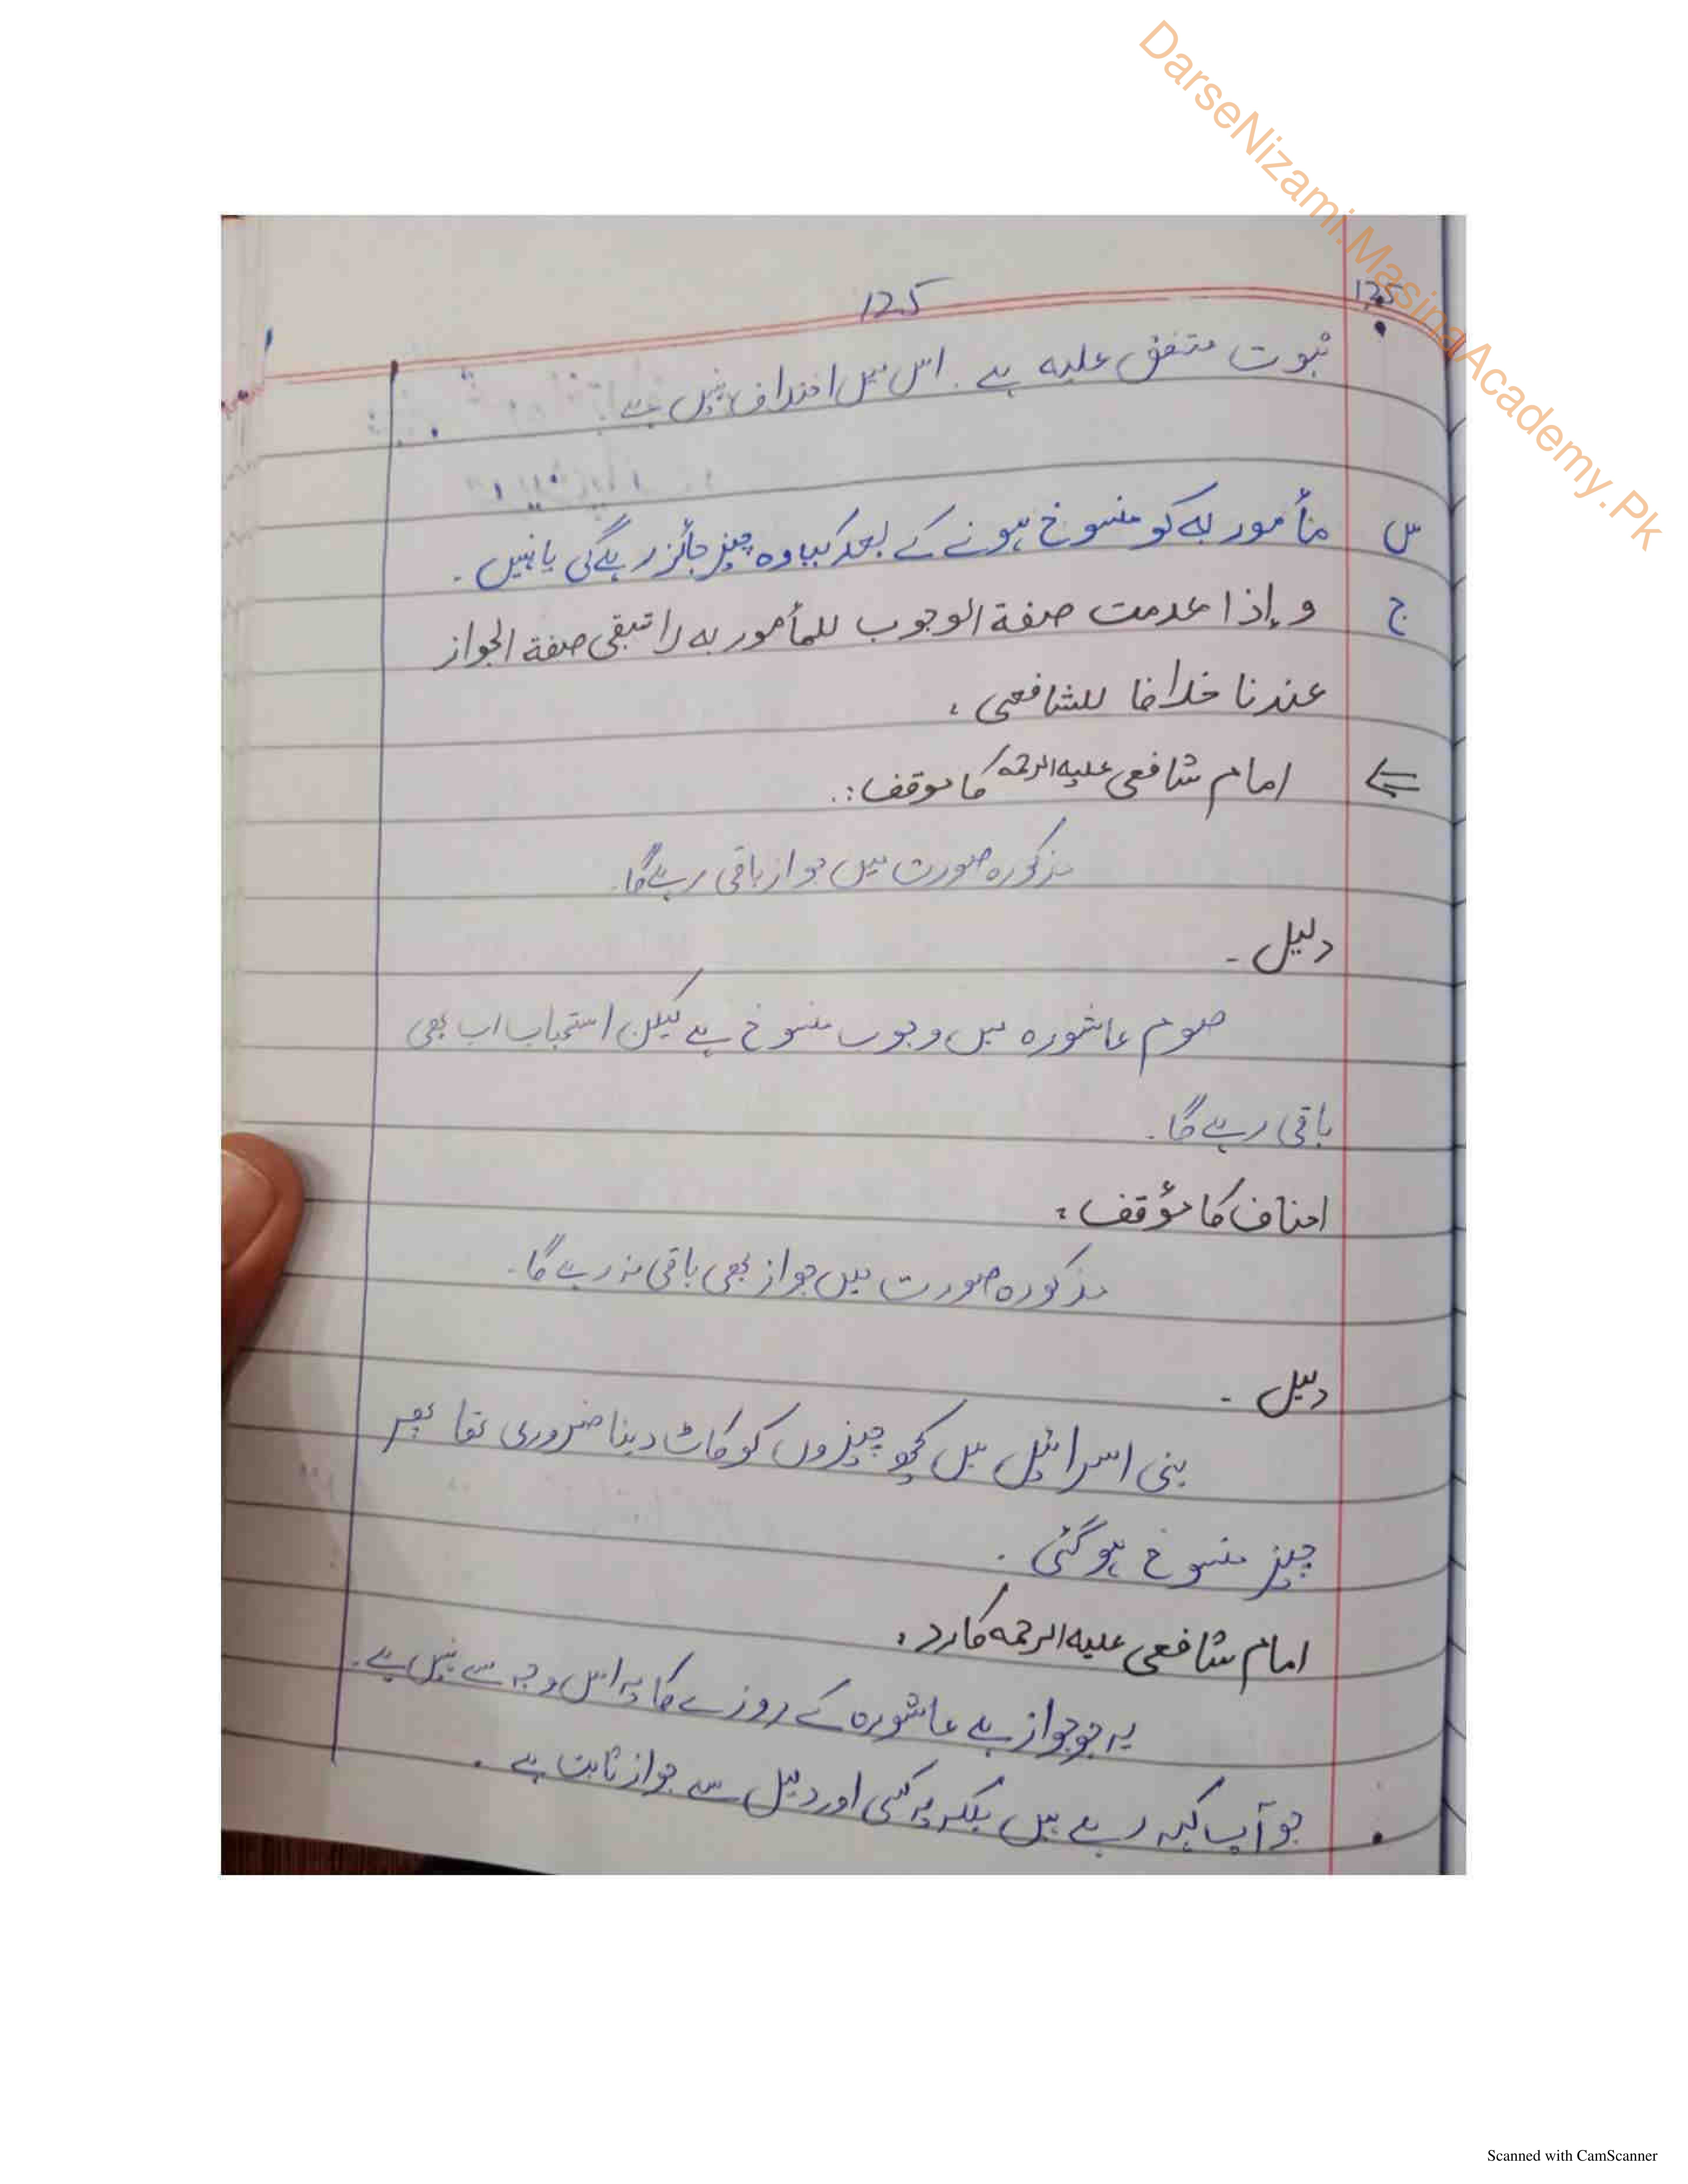 DarseNizami.MasinaAcademy.Pk
125
125
ثبوت متفق علیہ ہے ۔ اس میں اختلاف نہیں ہے
س مأمور بہ کو منسوخ ہونے کے بعد کیا وہ چیز جائز رہے گی یا نہیں ۔
ج و إذا عدمت صفة الوجوب للمأمور به لا تبقى صفة الجواز
عندنا خلافا للشافعی ،
امام شافعی علیہ الرحمہ کا موقف :.
مذکورہ صورت میں جواز باقی رہے گا۔
دلیل ۔
صوم عاشورہ میں وجوب منسوخ ہے لیکن استحباب اب بھی
باقی رہے گا ۔
احناف کا مؤقف :
مذکورہ صورت میں جواز بھی باقی نہ رہے گا ۔
دلیل ۔
بنی اسرائیل میں کچھ چیزوں کو کاٹ دینا ضروری تھا پھر
چیز منسوخ ہو گئی .
امام شافعی علیہ الرحمہ کا رد ،
یہ جو جواز ہے عاشورہ کے روزے کا یہ اس وجہ سے نہیں ہے ۔
جو آپ کہہ رہے ہیں بلکہ یہ کسی اور دلیل سے جواز ثابت ہے .
Scanned with CamScanner